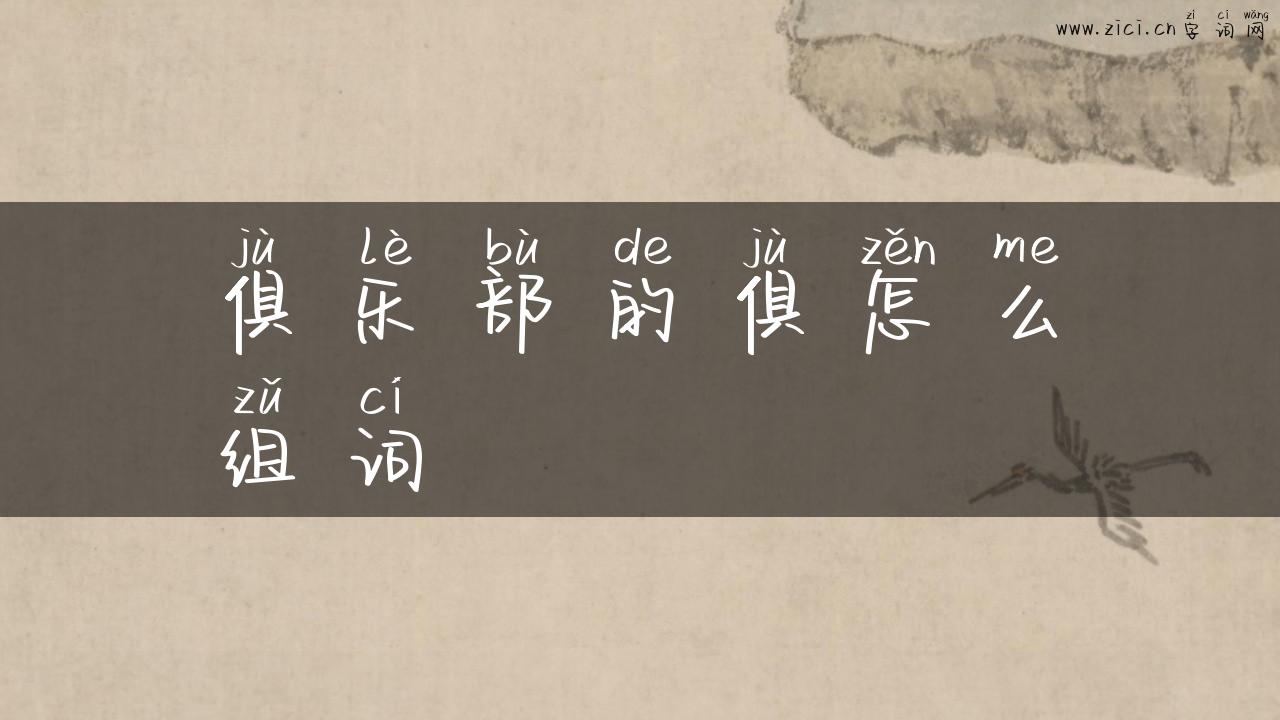 zì cí wǎng
www.zici.cn 字词网
jù lè bù de jù zěn me
俱乐部的俱怎么
zǔ cí
组词